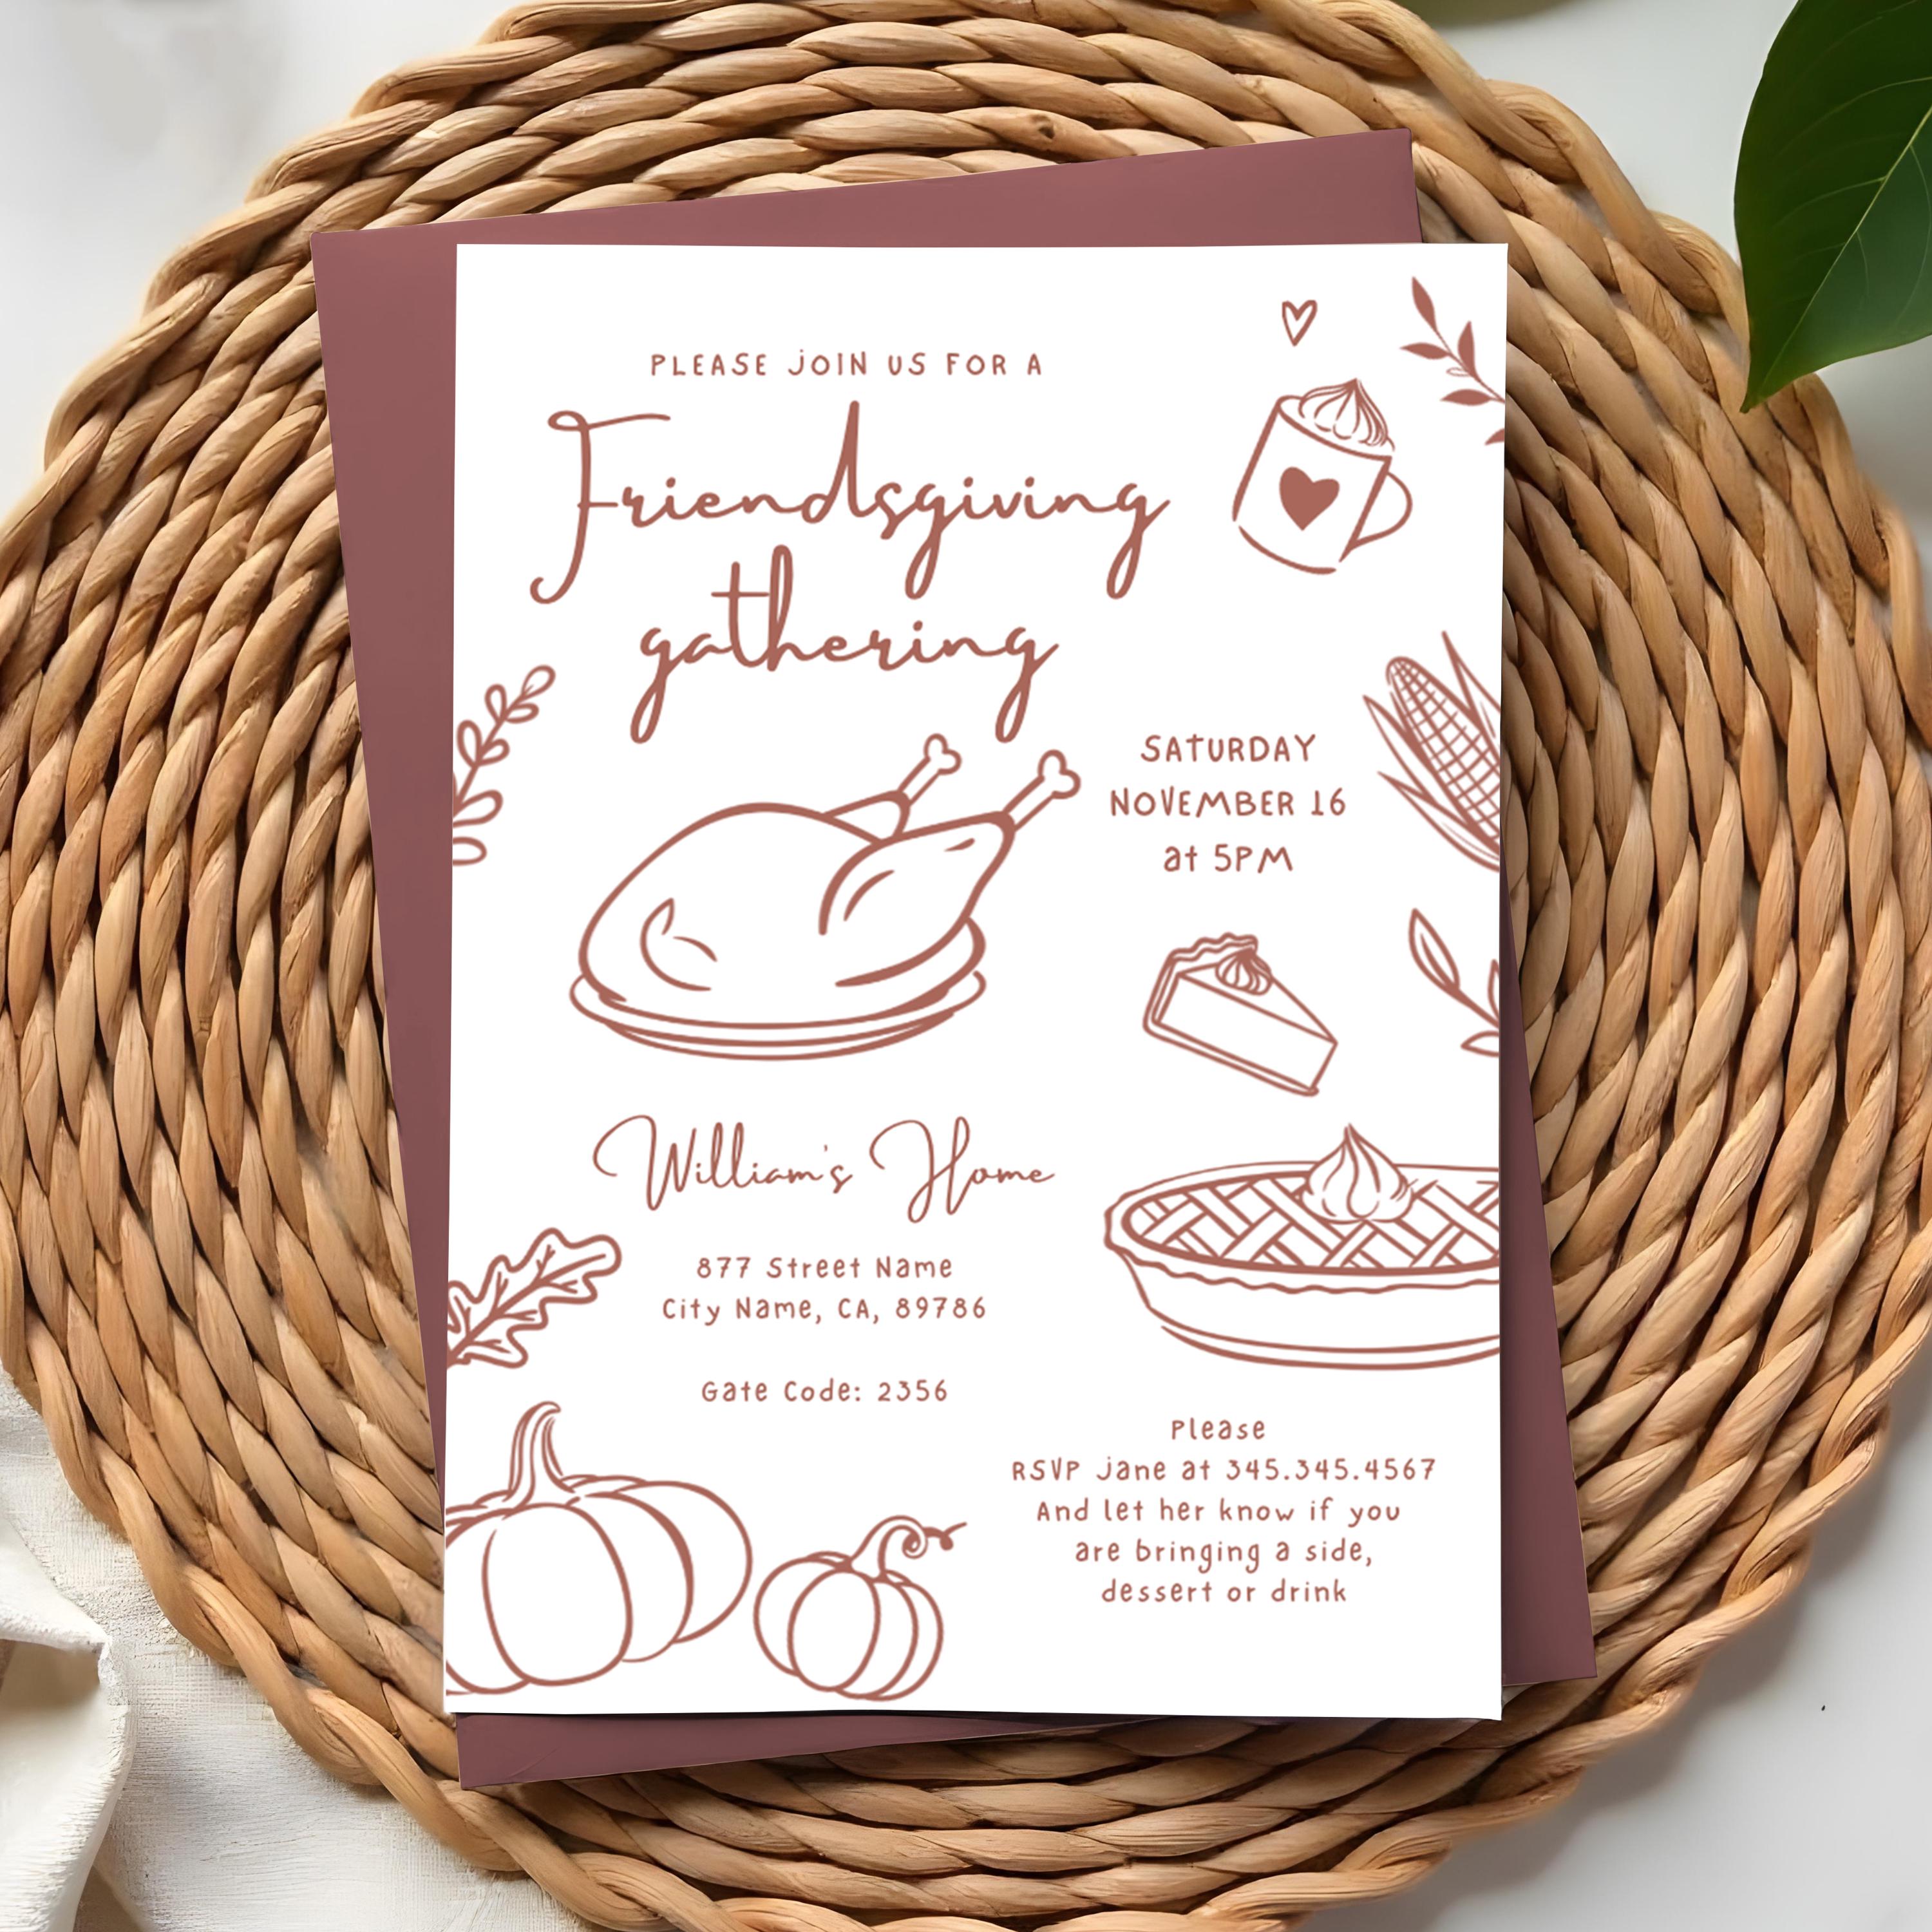 PLEASE JOIN US FOR A
Friendsgiving
gathering
SATURDAY
NOVEMBER 16
at 5PM
William's Home
877 Street Name
City Name, CA, 89786
Gate Code: 2356
Please
RSVP Jane at 345.345.4567
And let her know if you
are bringing a side,
dessert or drink